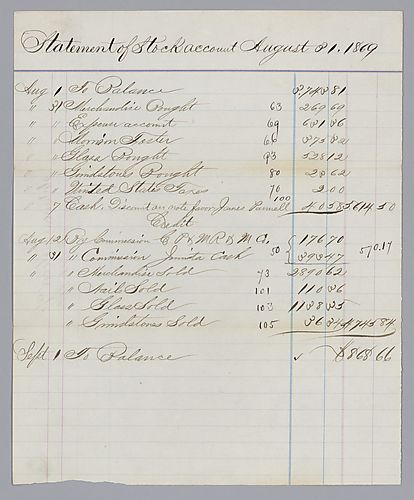 Statement of Stock account August 31, 1869
Aug 1 To Balance 2742 81
" 31 Merchandise Bought 63 269 69
" " Expense account 69 681 86
" " Florian Foster 66
" " Glass Bought 93 528 12
" " Grindstones Bought 80 286 2
" " United States Taxes 70 2 00
" 7 Cash, Discount on note favor James Pannell 100 40 58 5614 50
Credit
Aug 12 By Commission C P & M R D M Co. 176 70
" 31 " Commission Cash 50 393 47 570.17
" Merchandise Sold 73 2890 62
" Nails Sold 101 110 36
" Glass Sold 103 1138 35
" Grindstones Sold 105 36 34 4745 84
Sept 1 To Balance $868 66